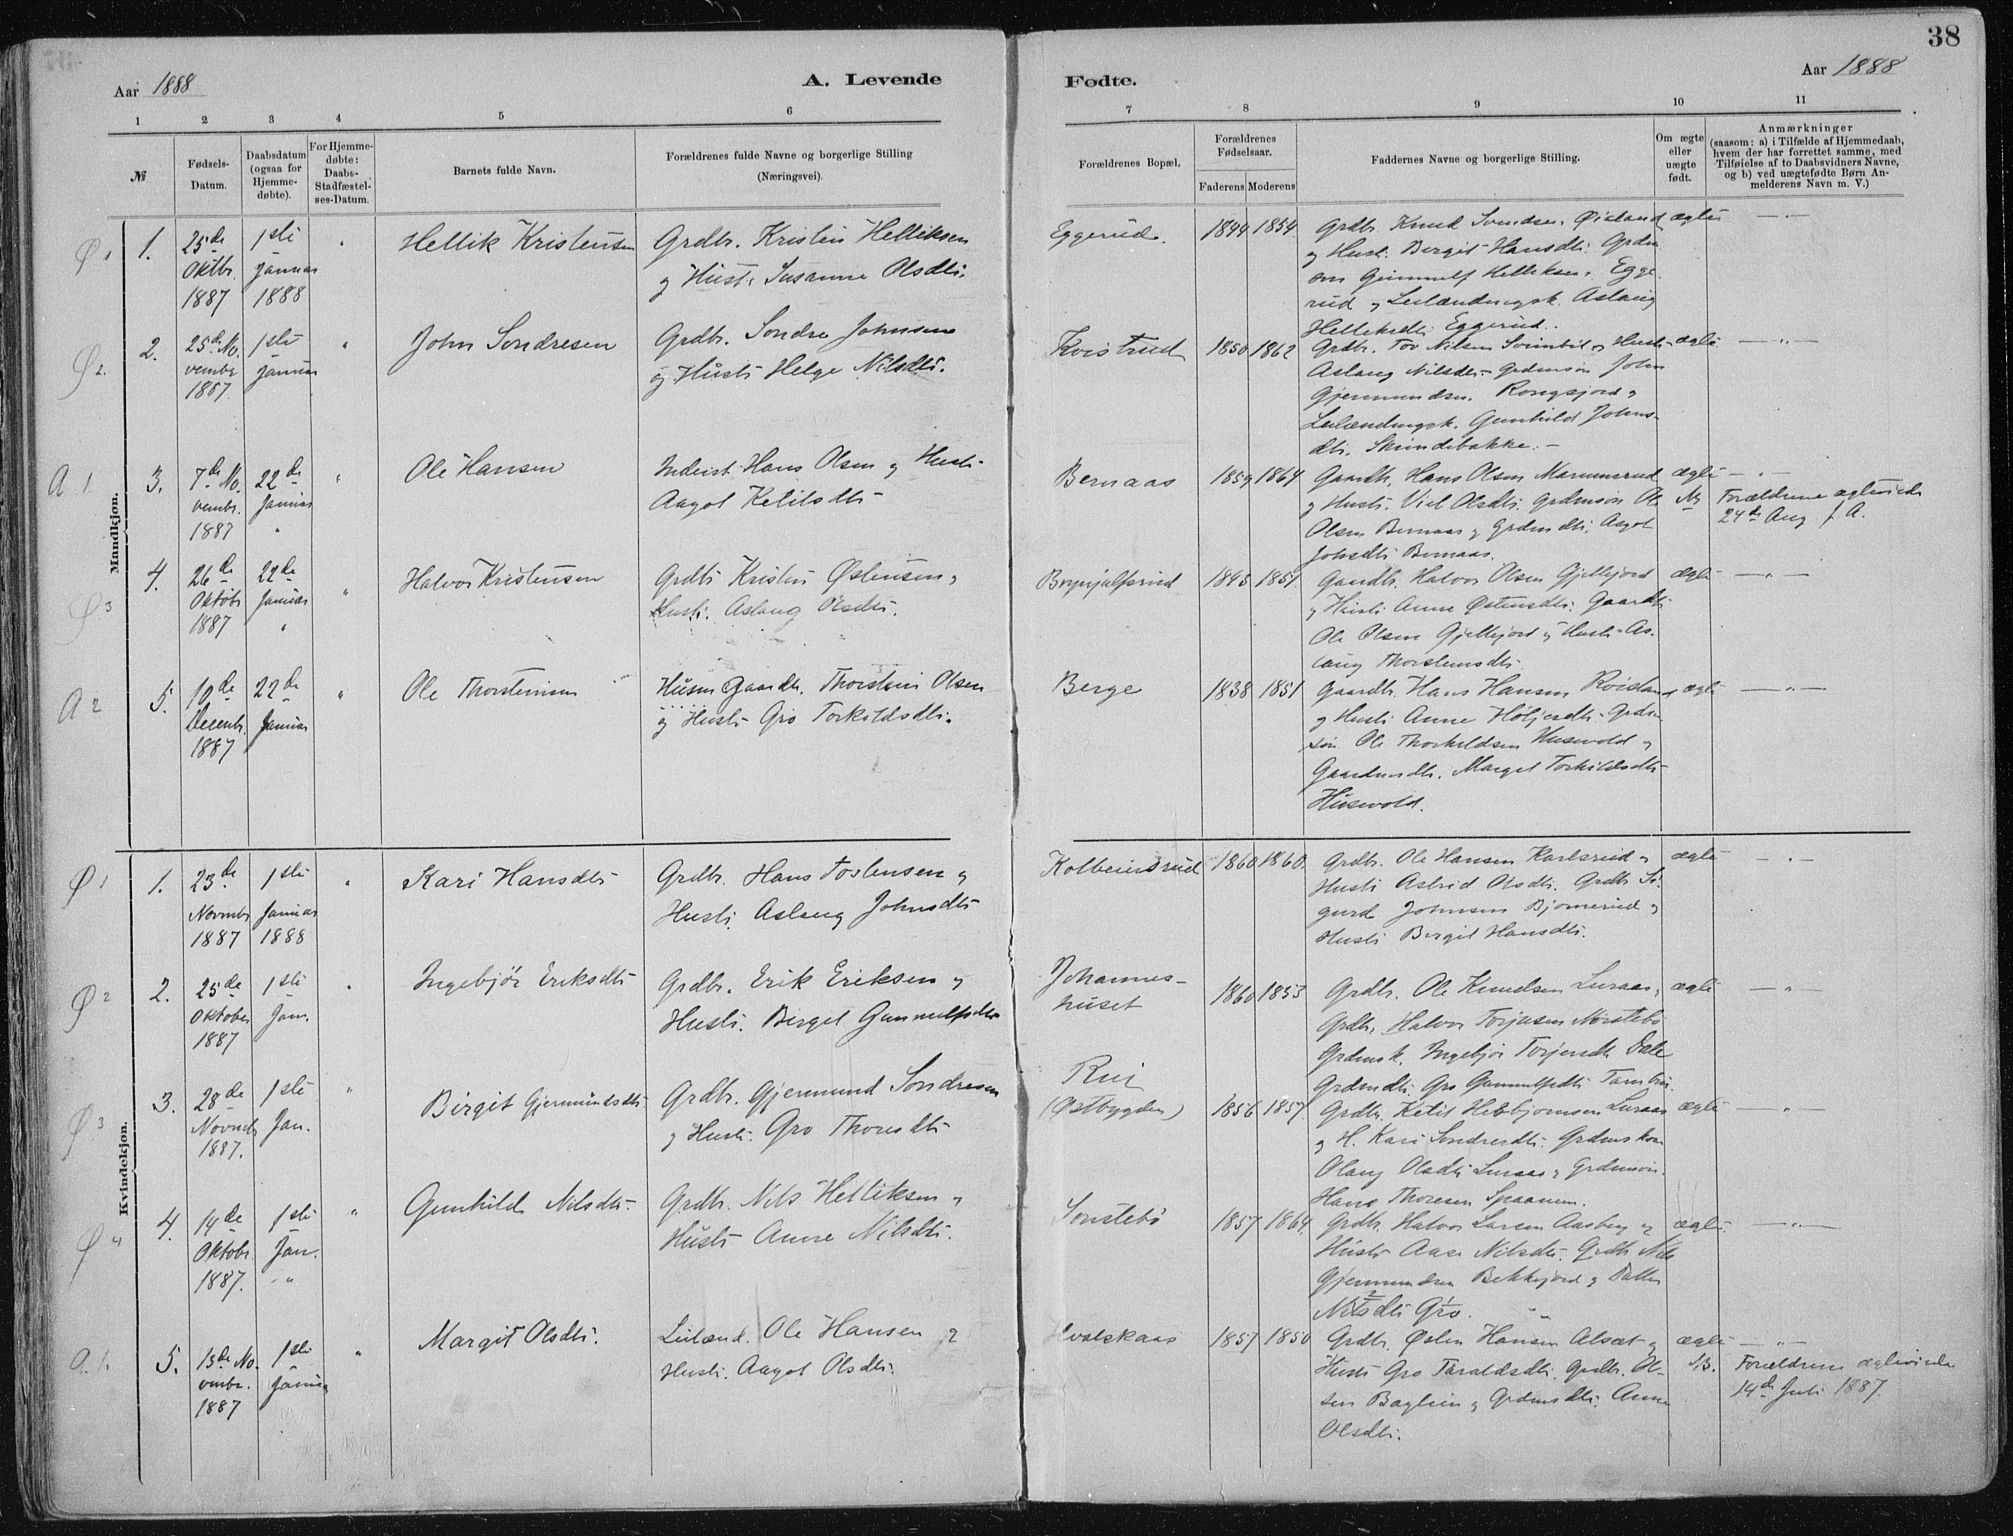 38
Aar 1888
A. Levende
Fødte.
Aar 1888
1 2 3 4 5 6 7 8 9 10 11
№
Fødsels-
Datum.
Daabsdatum
(ogsaa for
Hjemme-
døbte).
For Hjemme-
døbte:
Daabs-
Stadfæstel-
ses-Datum.
Barnets fulde Navn.
Forældrenes fulde Navne og borgerlige Stilling
(Næringsvei).
Forældrenes Bopæl.
Forældrenes
Fødselsaar.
Faderens Moderens
Faddernes Navne og borgerlige Stilling.
Om ægte
eller
uægte
født.
Anmærkninger
(saasom: a) i Tilfælde af Hjemmedaab,
hvem der har forrettet samme, med
Tilføielse af to Daabsvidners Navne,
og b) ved uægtefødte Børn An-
melderens Navn m. V.)
Mandkjøn.
Ø 1
1.
25de
Oktbr.
1887
1ste
Januar
1888
Hellik Kristensen
Grdbr. Kristen Helliksen
og Hust. Susanne Olsdtr.
Eggerud.
1844 1854
Grdbr. Knud Svendsen Øieland
og Hust. Birgit Hansdtr. Grdm
søn Gunnulf Helliksen Egge
rud og Leilændingsk. Aslaug
Helliksdtr. Eggerud.
ægte
Ø 2.
2.
25de No.
vembr
1887.
1ste
Januar
John Sondresen
Grdbr. Sondre Johnsen
og Hustr Helge Nilsdtr.
Kvistrud
1850 1862
Grdbr. Tov Nilsen Svinbil og Hustr
Aslaug Nilsdtr. Grdmsøn John
Gjermundsen Rongsjord og
Leilændingsk. Gunhild Johns-
dtr. Skindebakke.
ægte
A 1.
3.
7de No.
vembr.
1887
22de
Januar
Ole Hansen
Inderst Hans Olsen og Hust.
Aagot Ketilsdtr
Bernaas
1859 1864
Gaardb. Hans Olsen Marumsrud
og Hust. Viel Olsdtr. Grdmsøn Ole
Olsen Bernaas og Grdmdtr. Aagot
Johsdtr Bernaas.
ægte
Forældrene ægteviede
24de Aug. f. A.
Ø 3
4.
26de
Oktobr
1887
22de
Januar
Halvor Kristensen
Grdb. Kristen Østensen og
Hust. Aslaug Olsdtr.
Brynjulfsrud
1851
Gaardb. Halvor Olsen Gjellejord
og Hust. Anne Østensdtr. Gaardb.
Ole Olsen Gjellejord og Hust. As-
laug Thorsteinsdtr.
ægte
A 2
5.
10de
Decembr.
1887
22de
Januar
Ole Thorsteinsen
Husm Gaardb. Thorstein Olsen
og Hust. Gro Torkildsdtr.
Berge
1838 1851
Gaardb. Hans Hansen Roisland
og Hust. Anne Høljesdtr. Grdm
søn Ole Thorkildsen Husevold og
Gaardmdtr. Margit Torkildsdtr
Husevold.
ægte
Kvindekjøn.
Ø 1
1.
23de
Novmbr
1887
1ste
Januar
1888
Kari Hansdtr
Grdbr. Hans Tovlensen og
Hust. Aslaug Johnsdtr
Kolbeinsrud
1860 1860.
Grdbr. Ole Hansen Karlsrud og
Hust. Astrid Olsdtr. Grdbr Si-
gurd Johnsen Bjørnerud og
Hust. Birgit Hansdtr.
ægte
Ø 2
2.
25de
Oktober
1887
1ste
Jan.
Ingebjør Eriksdtr
Grdbr. Erik Eriksen og
Hust. Birgit Gunnulfsdtr
Johannes-
huset
1860 1853
Grdbr. Ole Knudsen Luraas,
Grdbr. Halvor Torjusen Nørstebø
Grdmsk. Ingebjør Torjusdtr. Dale
Grdmdtr. Gro Gunnulfsdtr.
ægte
Ø 3
3.
28de
Novmbr
1887.
1ste
Jan.
Birgit Gjermundsdtr
Grdbr. Gjermund Sondresen
og Hust. Gro Thoresdtr
Rui
(Østbygden)
1856 1857
Grdbr. Ketil Herbjørnsen Luraas
og H. Kari Sondresdtr. Grdmskone
Olaug Olsdtr. Luraas og Grdmsøn.
Hans Thoresen Spaanem.
ægte
Ø 4
4.
14de
Oktobr.
1887.
1ste
Jan.
Gunhild Nilsdtr.
Grdbr. Nils Helliksen og
Hust. Anne Nilsdtr.
Sønstebø
1857 1864.
Grdbr. Halvor Larsen Aasberg og
Hustr Aase Nilsdtr. Grdb Nils
Gjermundsen Bekkejord og Datter
Nilsdtr. Gro.
ægte
A. 1.
5.
13de No.
vembr.
1887
1ste
Januar
Margit Olsdtr.
Leilænd. Ole Hansen og
Hust. Aagot Olsdtr.
Hvalskaas
1857 1850
Grdbr. Østen Hansen Alsæt og
Hust. Gro Taraldsdtr. Grdbr. Ol-
sen Baglien og Grdmdtr. Anne
Olsdtr.
ægte
NB.
Forældrene ægteviede
14de Juli 1887.